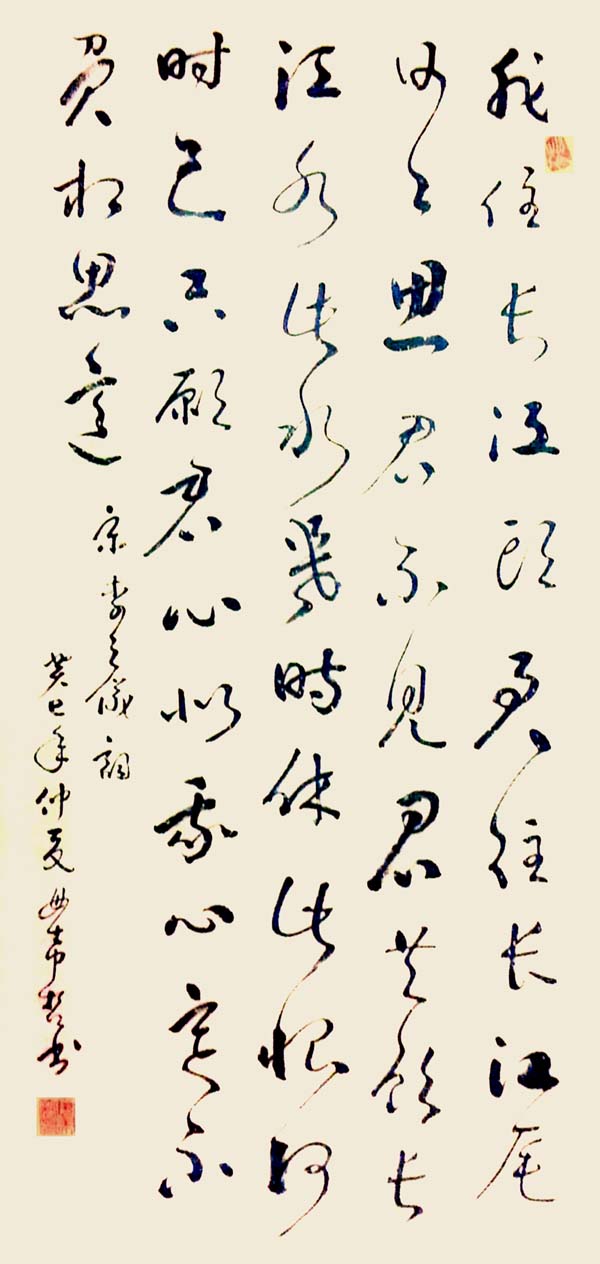 我住长江头君住长江尾
日日思君不见君共饮长
江水此水幾時休此恨何
时已只願君心似我心定不
负相思意
宋李之儀詞
癸巳年仲夏书